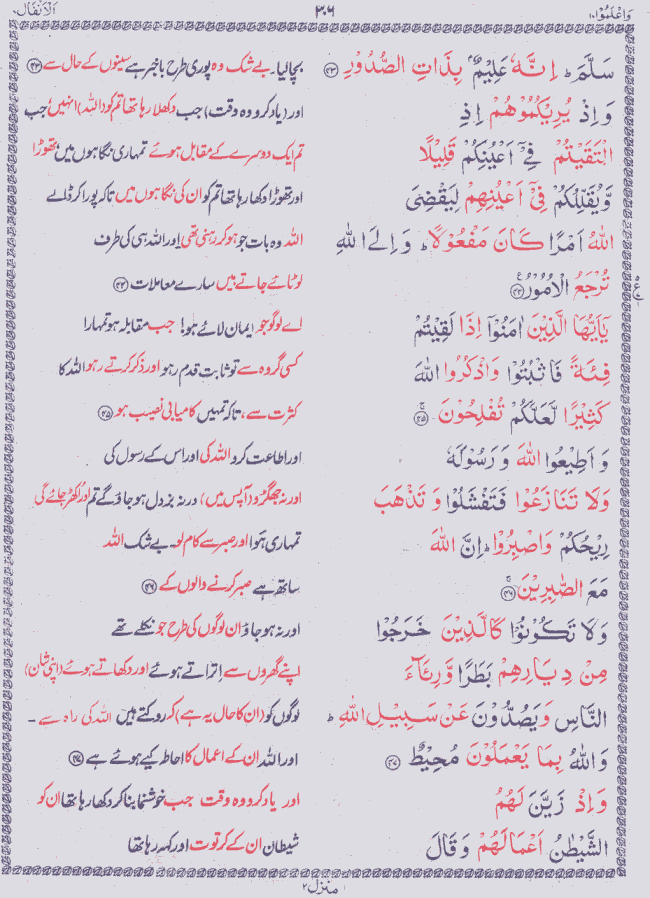 وَاعْلَمُوْٓا ١٠
٣٠٦
اَلْاَنْفَال ٨
سَلَّمَ ؕ اِنَّهٗ عَلِيْمٌۢ بِذَاتِ الصُّدُوْرِ ﴿٤٣﴾
وَ اِذْ يُرِيْكُمُوْهُمْ اِذِ
الْتَقَيْتُمْ فِيْٓ اَعْيُنِكُمْ قَلِيْلًا
وَّ يُقَلِّلُكُمْ فِيْٓ اَعْيُنِهِمْ لِيَقْضِيَ
اللّٰهُ اَمْرًا كَانَ مَفْعُوْلًا ؕ وَ اِلَى اللّٰهِ
تُرْجَعُ الْاُمُوْرُ ﴿٤٤﴾
يٰٓاَيُّهَا الَّذِيْنَ اٰمَنُوْٓا اِذَا لَقِيْتُمْ
فِئَةً فَاثْبُتُوْا وَاذْكُرُوا اللّٰهَ
كَثِيْرًا لَّعَلَّكُمْ تُفْلِحُوْنَ ﴿٤٥﴾
وَ اَطِيْعُوا اللّٰهَ وَ رَسُوْلَهٗ
وَلَا تَنَازَعُوْا فَتَفْشَلُوْا وَ تَذْهَبَ
رِيْحُكُمْ وَاصْبِرُوْا ؕ اِنَّ اللّٰهَ
مَعَ الصّٰبِرِيْنَ ﴿٤٦﴾
وَلَا تَكُوْنُوْا كَالَّذِيْنَ خَرَجُوْا
مِنْ دِيَارِهِمْ بَطَرًا وَّ رِئَآءَ
النَّاسِ وَ يَصُدُّوْنَ عَنْ سَبِيْلِ اللّٰهِ ؕ
وَاللّٰهُ بِمَا يَعْمَلُوْنَ مُحِيْطٌ ﴿٤٧﴾
وَ اِذْ زَيَّنَ لَهُمُ
الشَّيْطٰنُ اَعْمَالَهُمْ وَ قَالَ
بچالیا۔ بے شک وہ پوری طرح باخبر ہے سینوں کے حال سے ﴿۴۳﴾
اور (یاد کرو وہ وقت) جب دکھلا رہا تھا تم کو (اللہ) انہیں، جب
تم ایک دوسرے کے مقابل ہوئے تمہاری نگاہوں میں تھوڑا
اور تھوڑا دکھا رہا تھا تم کو ان کی نگاہوں میں تاکہ پورا کر ڈالے
اللہ وہ بات جو ہو کر رہنی تھی اور اللہ ہی کی طرف
لوٹائے جاتے ہیں سارے معاملات ﴿۴۴﴾
اے لوگو جو ایمان لائے ہو! جب مقابلہ ہو تمہارا
کسی گروہ سے تو ثابت قدم رہو اور ذکر کرتے رہو اللہ کا
کثرت سے، تاکہ تمہیں کامیابی نصیب ہو ﴿۴۵﴾
اور اطاعت کرو اللہ کی اور اس کے رسول کی
اور نہ جھگڑو (آپس میں) ورنہ بزدل ہو جاؤ گے تم اور اکھڑ جائے گی
تمہاری ہوا اور صبر سے کام لو۔ بے شک اللہ
ساتھ ہے صبر کرنے والوں کے ﴿۴۶﴾
اور نہ ہو جاؤ ان لوگوں کی طرح جو نکلے تھے
اپنے گھروں سے اتراتے ہوئے اور دکھاتے ہوئے (اپنی شان)
لوگوں کو (ان کا حال یہ ہے) کہ روکتے ہیں اللہ کی راہ سے ۔
اور اللہ ان کے اعمال کا احاطہ کیے ہوئے ہے ﴿۴۷﴾
اور یاد کرو وہ وقت جب خوشنما بنا کر دکھا رہا تھا ان کو
شیطان ان کے کرتوت اور کہہ رہا تھا
منزل ٢